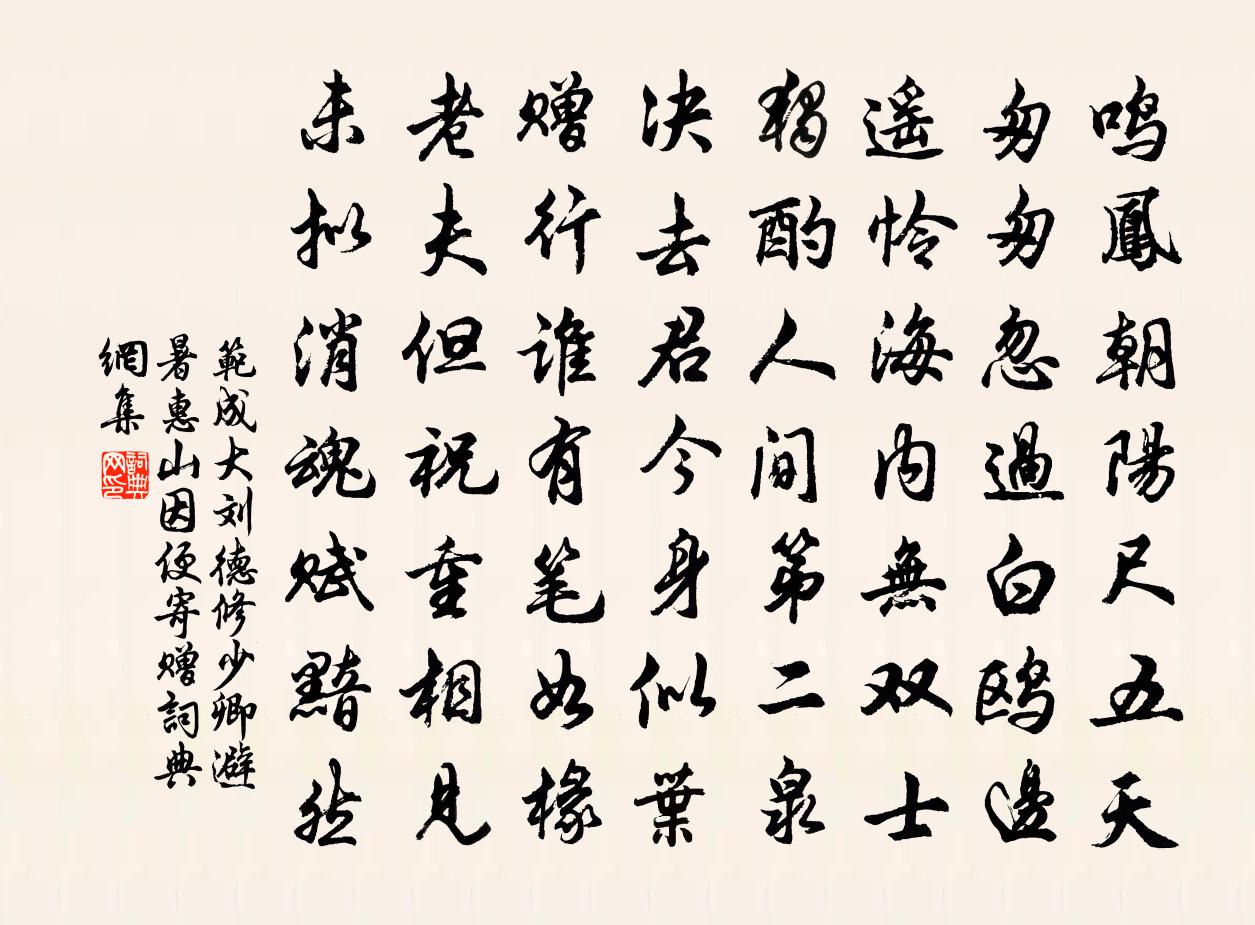 鸣鳳朝陽尺五天
匆匆忽過白鸥邊
遥怜海内無双士
獨酌人间第二泉
决去君今身似葉
赠行谁有笔如椽
老夫但祝重相見
未拟消魂赋黯然
範成大刘德修少卿避
暑惠山因便寄赠詞典
網集
詞典网印